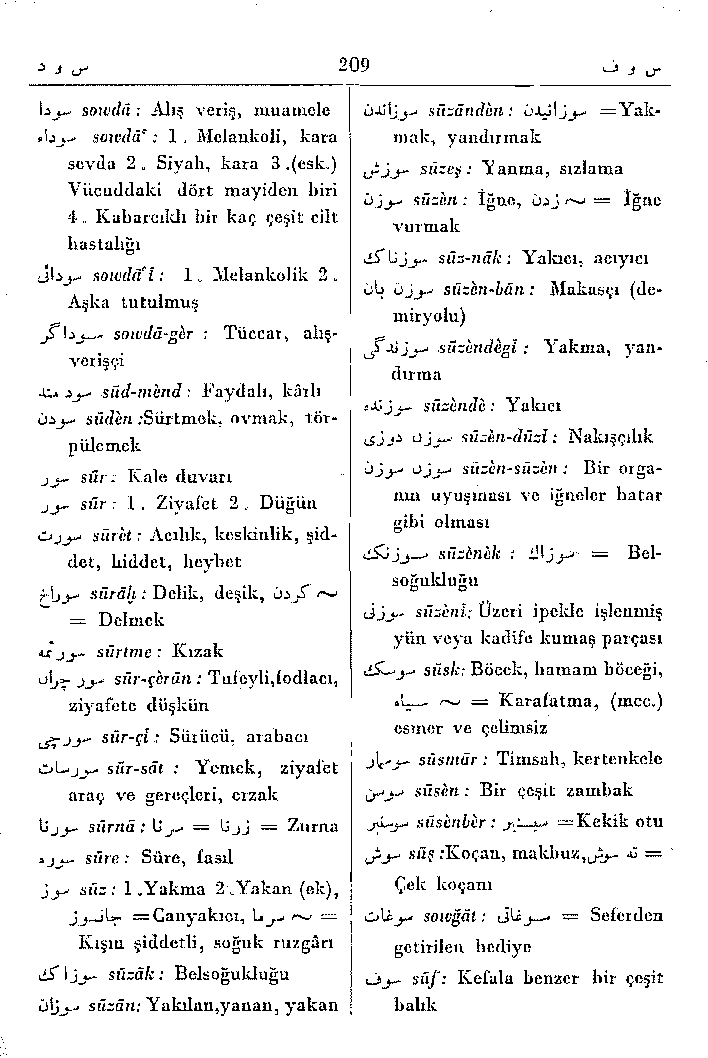 س و د
209
س و ف
سودا sowdā : Alış veriş, muamele
سوداء sowdāʿ : 1. Melankoli, kara
sevda 2. Siyah, kara 3.(esk.)
Vücuddaki dört mayiden biri
4. Kabarcıklı bir kaç çeşit cilt
hastalığı
سودائی sowdāʿî : 1. Melankolik 2.
Aşka tutulmuş
سوداگر sowdā-gèr : Tüccar, alış-
verişçi
سود مند sūd-mènd : Faydalı, kârlı
سودن sūdèn :Sürtmek, ovmak, tör-
pülemek
سور sūr : Kale duvarı
سور sūr : 1. Ziyafet 2. Düğün
سورت sūrèt : Acılık, keskinlik, şid-
det, hiddet, heybet
سوراخ sūrāḫ : Delik, deşik, کردن ~
= Delmek
سورتمه sūrtme : Kızak
سور چران sūr-çèrān : Tufeyli,fodlacı,
ziyafete düşkün
سورچی sūr-çî : Sürücü, arabacı
سورسات sūr-sāt : Yemek, ziyafet
araç ve gereçleri, erzak
سورنا sūrnā : سرنا = زرنا = Zurna
سوره sūre : Süre, fasıl
سوز sūz : 1.Yakma 2.Yakan (ek),
جانسوز =Canyakıcı, سرما ~ =
Kışın şiddetli, soğuk ruzgârı
سوزاك sūzāk : Belsoğukluğu
سوزان sūzān: Yakılan,yanan, yakan
سوزاندن sūzāndèn : سوزانیدن =Yak-
mak, yandırmak
سوزش sūzeş : Yanma, sızlama
سوزن sūzèn : İğne, زدن ~ = İğne
vurmak
سوزناك sūz-nāk : Yakıcı, acıyıcı
سوزن بان sūzèn-bān : Makasçı (de-
miryolu)
سوزندگی sūzèndègî : Yakma, yan-
dırma
سوزنده sūzèndè : Yakıcı
سوزن دوزی sūzèn-dūzî : Nakışçılık
سوزن سوزن sūzèn-sūzèn : Bir orga-
nın uyuşması ve iğneler batar
gibi olması
سوزنك sūzènèk : سوزاك = Bel-
soğukluğu
سوزنی sūzènî: Üzeri ipekle işlenmiş
yün veya kadife kumaş parçası
سوسك sūsk: Böcek, hamam böceği,
سیاه ~ = Karafatma, (mec.)
esmer ve çelimsiz
سوسمار sūsmār : Timsah, kertenkele
سوسن sūsèn : Bir çeşit zambak
سوسنبر sūsènbèr : سیسنبر =Kekik otu
سوش sūş :Koçan, makbuz, ته سوش =
Çek koçanı
سوغات sowġāt : سوغاتی = Seferden
getirilen hediye
سوف sūf : Kefala benzer bir çeşit
balık